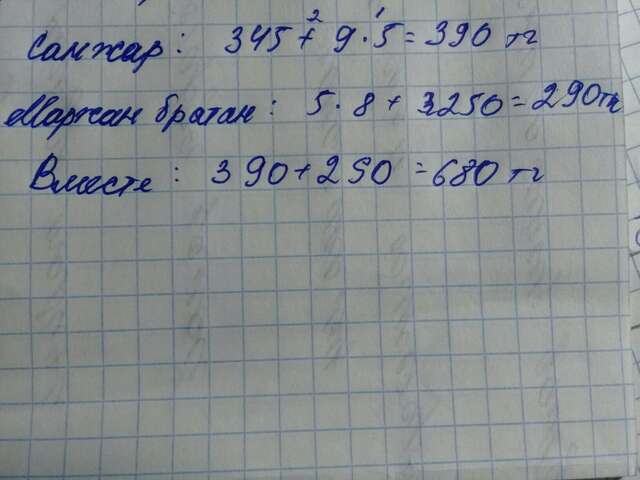 Санжар: 345 + 9 · 5 = 390 тг
Маржан братан: 5 · 8 + 250 = 290 тг
Вместе: 390 + 290 = 680 тг